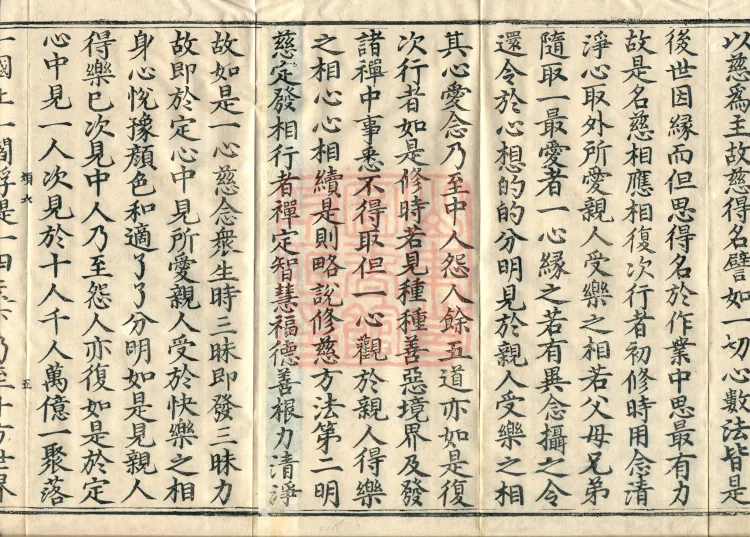 以慈為主故慈得名譬如一切心數法皆是
後世因緣而但思得名於作業中思最有力
故是名慈相應相復次行者初修時用念清
淨心取外所愛親人受樂之相若父母兄弟
隨取一最愛者一心緣之若有異念攝之令
還令於心想的的分明見於親人受樂之相
其心愛念乃至中人怨人餘五道亦如是復
次行者如是修時若見種種善惡境界及發
諸禪中事悉不得取但一心觀於親人得樂
之相心心相續是則略說修慈方法第二明
慈定發相行者禪定智慧福德善根力清淨
故如是一心慈念衆生時三昧即發三昧力
故即於定心中見所愛親人受於快樂之相
身心悅豫顏色和適了了分明如是見親人
得樂已次見中人乃至怨人亦復如是於定
心中見一人次見於十人千人萬億一聚落
一國土一閻浮提一四天下乃至十方世界
五